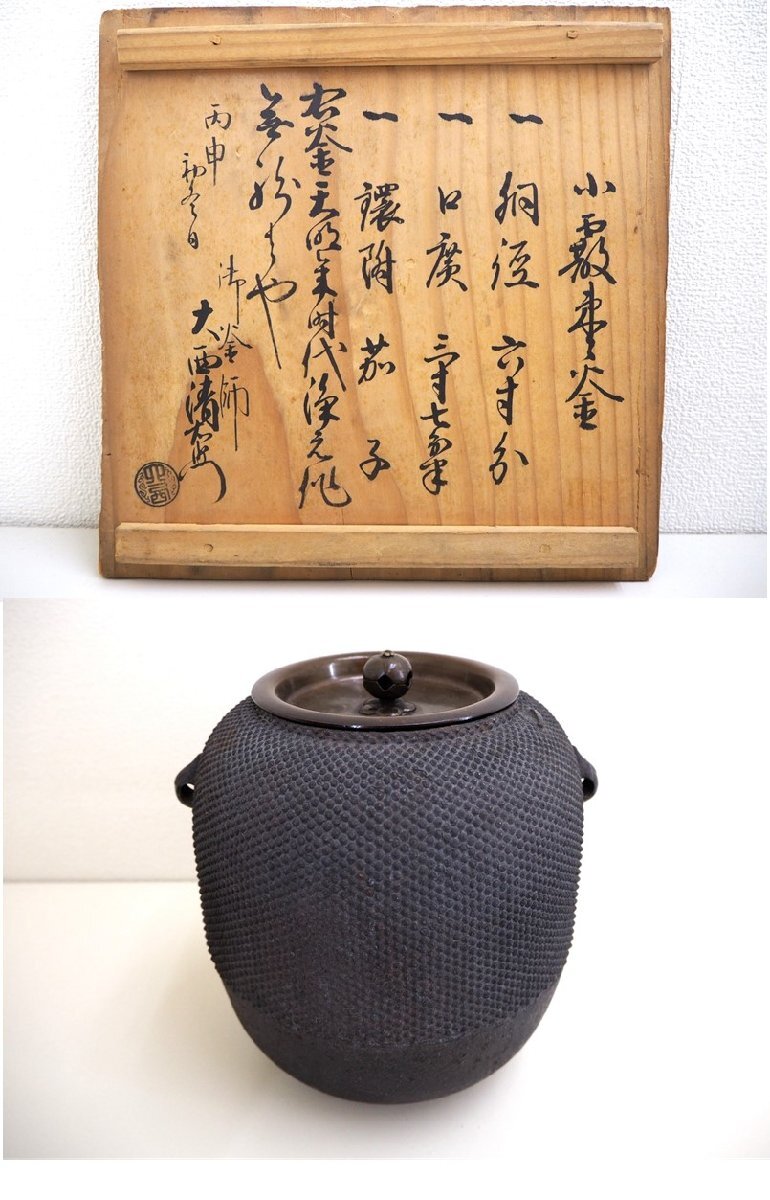 小霰棗釜
一 胴径 六寸分
一 口廣 三寸七分半
一 鐶附 茄子
右釜天明末時代浄元作
無紛者也
丙申
初冬日
御釜師
大西清右衛門